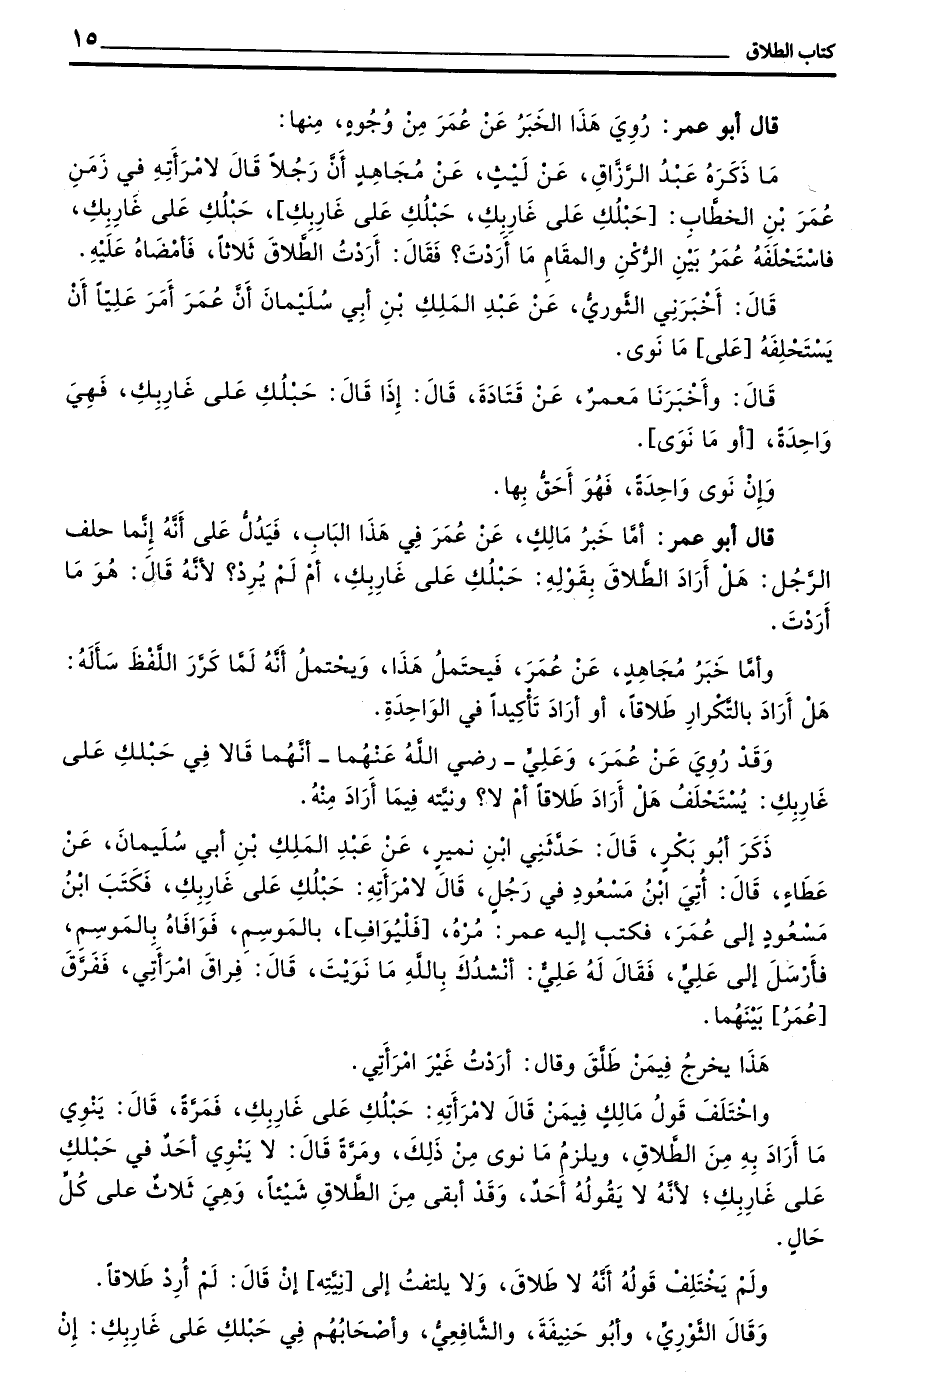 كتاب الطلاق ١٥
قال أبو عمر: رُوِيَ هَذَا الخَبَرُ عَنْ عُمَرَ مِنْ وُجُوهٍ، مِنها:
مَا ذَكَرَهُ عَبْدُ الرَّزَّاقِ، عَنْ لَيْثٍ، عَنْ مُجَاهِدٍ أَنَّ رَجُلاً قَالَ لامْرَأَتِهِ في زَمَنِ
عُمَرَ بْنِ الخطَّابِ: [حَبْلُكِ عَلى غَارِبِكِ، حَبْلُكِ عَلى غَارِبِكِ]، حَبْلُكِ عَلى غَارِبِكِ،
فاسْتَحْلَفَهُ عُمَرُ بَيْنِ الرُّكْنِ والمقَامِ مَا أَرَدْتَ؟ فَقَالَ: أَرَدْتُ الطَّلاقَ ثَلاثاً، فَأَمْضَاهُ عَلَيْهِ.
قَالَ: أَخْبَرَنِي الثَّوريُّ، عَنْ عَبْدِ المَلِكِ بْنِ أبي سُلَيْمانَ أَنَّ عُمَرَ أَمَرَ عَلِيّاً أَنْ
يَسْتَحْلِفَهُ [عَلى] مَا نَوى.
قَالَ: وأَخْبَرَنَا مَعمرٌ، عَنْ قَتَادَةَ، قَالَ: إِذَا قَالَ: حَبْلُكِ عَلى غَارِبِكِ، فَهِيَ
وَاحِدَةً، [أو مَا نَوَى].
وَإِنْ نَوى وَاحِدَةً، فَهُوَ أَحَقُّ بِها.
قال أبو عمر: أمَّا خَبرُ مَالِكٍ، عَنْ عُمَرَ فِي هَذَا البَابِ، فَيَدُلُّ عَلى أَنَّهُ إنَّما حلف
الرَّجُل: هَلْ أَرَادَ الطَّلاقَ بِقَوْلِهِ: حَبْلُكِ عَلى غَارِبِكِ، أمْ لَمْ يُرِدْ؟ لأنَّهُ قَالَ: هُوَ مَا
أَرَدْتَ.
وأمَّا خَبَرُ مُجَاهِدٍ، عَنْ عُمَرَ، فَيحتَملُ هَذَا، وَيحْتملُ أنَّهُ لَمَّا كَرَّرَ اللَّفْظَ سَأَلَهُ:
هَلْ أَرَادَ بالتَّكْرارِ طَلاقاً، أو أرَادَ تَأْكِيداً في الوَاحِدَةِ.
وَقَدْ رُوِيَ عَنْ عُمَرَ، وَعَلِيٍّ ـ رضي اللَّهُ عَنْهُما ـ أنَّهُما قَالا فِي حَبْلكِ عَلى
غَارِبِكِ: يُسْتَحْلَفُ هَلْ أرَادَ طَلاقاً أمْ لا؟ ونيَّته فِيمَا أرَادَ مِنْهُ.
ذَكَرَ أبُو بَكْرٍ، قَالَ: حَدَّثَنِي ابْنِ نميرٍ، عَنْ عَبْدِ المَلِكِ بْنِ أبي سُلَيمانَ، عَنْ
عَطَاءٍ، قَالَ: أُتِيَ ابْنُ مَسْعُودٍ في رَجُلٍ، قَالَ لامْرَأَتِهِ: حَبْلُكِ عَلى غَارِبِكِ، فَكَتَبَ ابْنُ
مَسْعُودٍ إلى عُمَرَ، فكتب إليه عمر: مُرْهُ، [فَلْيُوَافِ]، بالمَوسِمِ، فَوَافَاهُ بِالمَوسِمِ،
فأَرْسَلَ إلى عَلِيٍّ، فَقَالَ لَهُ عَلِيٌّ: أنْشدُكَ بِاللَّهِ مَا نَوَيْتَ، قَالَ: فِراقَ امْرَأَتِي، فَفَرَّقَ
[عُمَرُ] بَيْنَهُما.
هَذَا يخرجُ فِيمَنْ طَلَّقَ وقال: أرَدْتُ غَيْرَ امْرَأَتِي.
واخْتَلَفَ قَولُ مَالِكٍ فِيمَنْ قَالَ لامْرَأَتِهِ: حَبْلُكِ عَلى غَارِبِكِ، فَمَرَّةً، قَالَ: يَنْوِي
مَا أرَادَ بِهِ مِنَ الطَّلاقِ، ويلزمُ مَا نوى مِنْ ذَلِكَ، ومَرَّةً قَالَ: لا يَنْوِي أحَدٌ في حَبْلكِ
عَلى غَارِبِكِ؛ لأنَّهُ لا يَقُولُهُ أَحَدٌ، وَقَدْ أبقى مِنَ الطَّلاقِ شَيْئاً، وَهِيَ ثَلاثٌ على كُلِّ
حَالٍ.
ولَمْ يَخْتَلِفْ قَولُهُ أنَّهُ لا طَلاقَ، وَلا يلتفتُ إلى [نِيَّتِه] إنْ قَالَ: لَمْ أُرِدْ طَلاقاً.
وَقَالَ الثَّوْرِيِّ، وأبُو حَنِيفَةَ، والشَّافِعِيُّ، وأصْحَابُهُم فِي حَبْلكِ عَلى غَارِبِكِ: إنْ